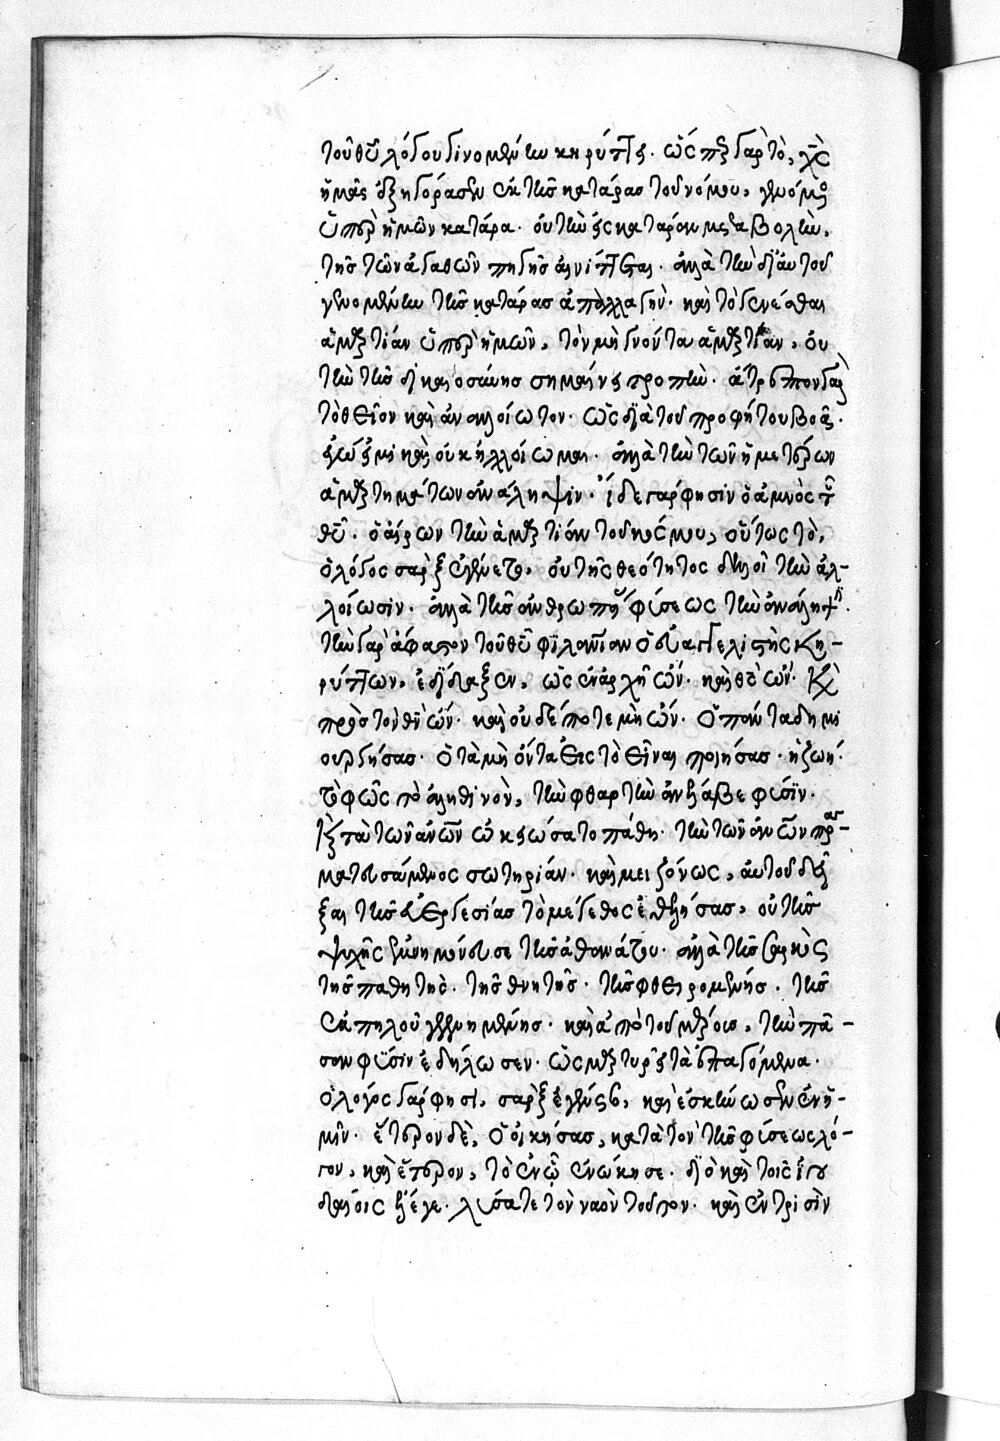 τοῦ θυ λόγου γινομένην κηρύττει. ὥσπερ γὰρ τὸ, χς
ἡμᾶς ἐξηγόρασεν ἐκ τῆς κατάρας τοῦ νόμου, γενόμενος
ὑπὲρ ἡμῶν κατάρα. οὐ τὴν εἰς κατάραν μεταβολὴν,
τῆς τῶν ἀγαθῶν πηγῆς αἰνίττεται. ἀλλὰ τὴν δι' αὐτοῦ
γενομένην τῆς κατάρας ἀπαλλαγήν. καὶ τὸ γενέσθαι
ἁμαρτίαν ὑπὲρ ἡμῶν, τὸν μὴ γνόντα ἁμαρτίαν, οὐ
τὴν τῆς δικαιοσύνης σημαίνει τροπὴν. ἄτρεπτον γὰρ
τὸ θεῖον καὶ ἀναλλοίωτον. ὡς διὰ τοῦ προφήτου βοᾷ.
ἐγώ εἰμι καὶ οὐκ ἠλλοίωμαι. ἀλλὰ τὴν τῶν ἡμετέρων
ἁμαρτημάτων ἀνάληψιν. ἴδε γάρ φησὶν ὁ ἀμνὸς τοῦ
θυ. ὁ αἴρων τὴν ἁμαρτίαν τοῦ κόσμου, οὕτως τὸ,
ὁ λόγος σὰρξ ἐγένετο, οὐ τῆς θεότητος δηλοῖ τὴν ἀλ-
λοίωσιν. ἀλλὰ τῆς ἀνθρωπίνης φύσεως τὴν ἀνάληψιν.
τὴν γὰρ ἄφατον τοῦ θυ φιλανίαν ὁ εὐαγγελιστὴς κη-
ρύττων, ἐδίδαξεν, ὡς ἐν ἀρχῇ ὤν. καὶ θς ὤν. καὶ
πρὸς τὸν θν ὤν. καὶ οὐδέποτε μὴ ὤν. ὁ πάντα δημι
ουργήσας. ὁ τὰ μὴ ὄντα εἰς τὸ εἶναι ποιήσας. ἡ ζωή.
τὸ φῶς τὸ ἀληθινὸν, τὴν φθαρτὴν ἀνέλαβε φύσιν.
καὶ τὰ τῶν ἀνων ᾠκειώσατο πάθη. τὴν τῶν ἀνων πραγ-
ματευσάμενος σωτηρίαν. καὶ μειζόνως, αὐτοῦ δεῖ
ξαι τῆς εὐεργεσίας τὸ μέγεθος ἐθελήσας, οὐ τῆς
ψυχῆς ἐμνημόνευσε τῆς ἀθανάτου. ἀλλὰ τῆς σαρκὸς
τῆς παθητῆς. τῆς θνητῆς. τῆς φθειρομένης. τῆς
ἐκ πηλοῦ γεγενημένης. καὶ ἀπὸ τοῦ μέρους, τὴν πᾶ-
σαν φύσιν ἐδήλωσεν. ὡς μαρτυρεῖ τὰ ἐπαγόμενα.
ὁ λόγος γάρ φησι, σὰρξ ἐγένετο, καὶ ἐσκήνωσεν ἐν ἡ-
μῖν. ἕτερον δὲ, ὁ οἰκήσας, κατὰ τὸν τῆς φύσεως λό-
γον, καὶ ἕτερον, τὸ ἐν ᾧ ἐνώκησε. διὸ καὶ τοῖς ἰου
δαίοις ἔλεγε. λύσατε τὸν ναὸν τοῦτον. καὶ ἐν τρισὶν